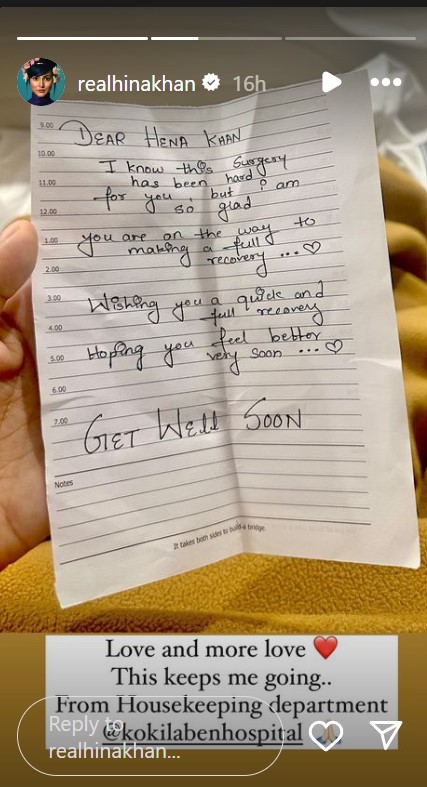 realhinakhan 16h
9.00
DEAR HENA KHAN
10.00
I know this Surgery
has been hard
11.00
for you, but I am
so glad
12.00
you are on the way to
1.00
making a full
recovery ...
2.00
3.00
Wishing you a quick and
full recovery
4.00
Hoping you feel better
5.00
very soon ...
6.00
7.00
GET WELL SOON
Notes
It takes both sides to build a bridge.
Love and more love ❤️
This keeps me going..
From Housekeeping department
@kokilabenhospital 🙏🏻
Reply to
realhinakhan...